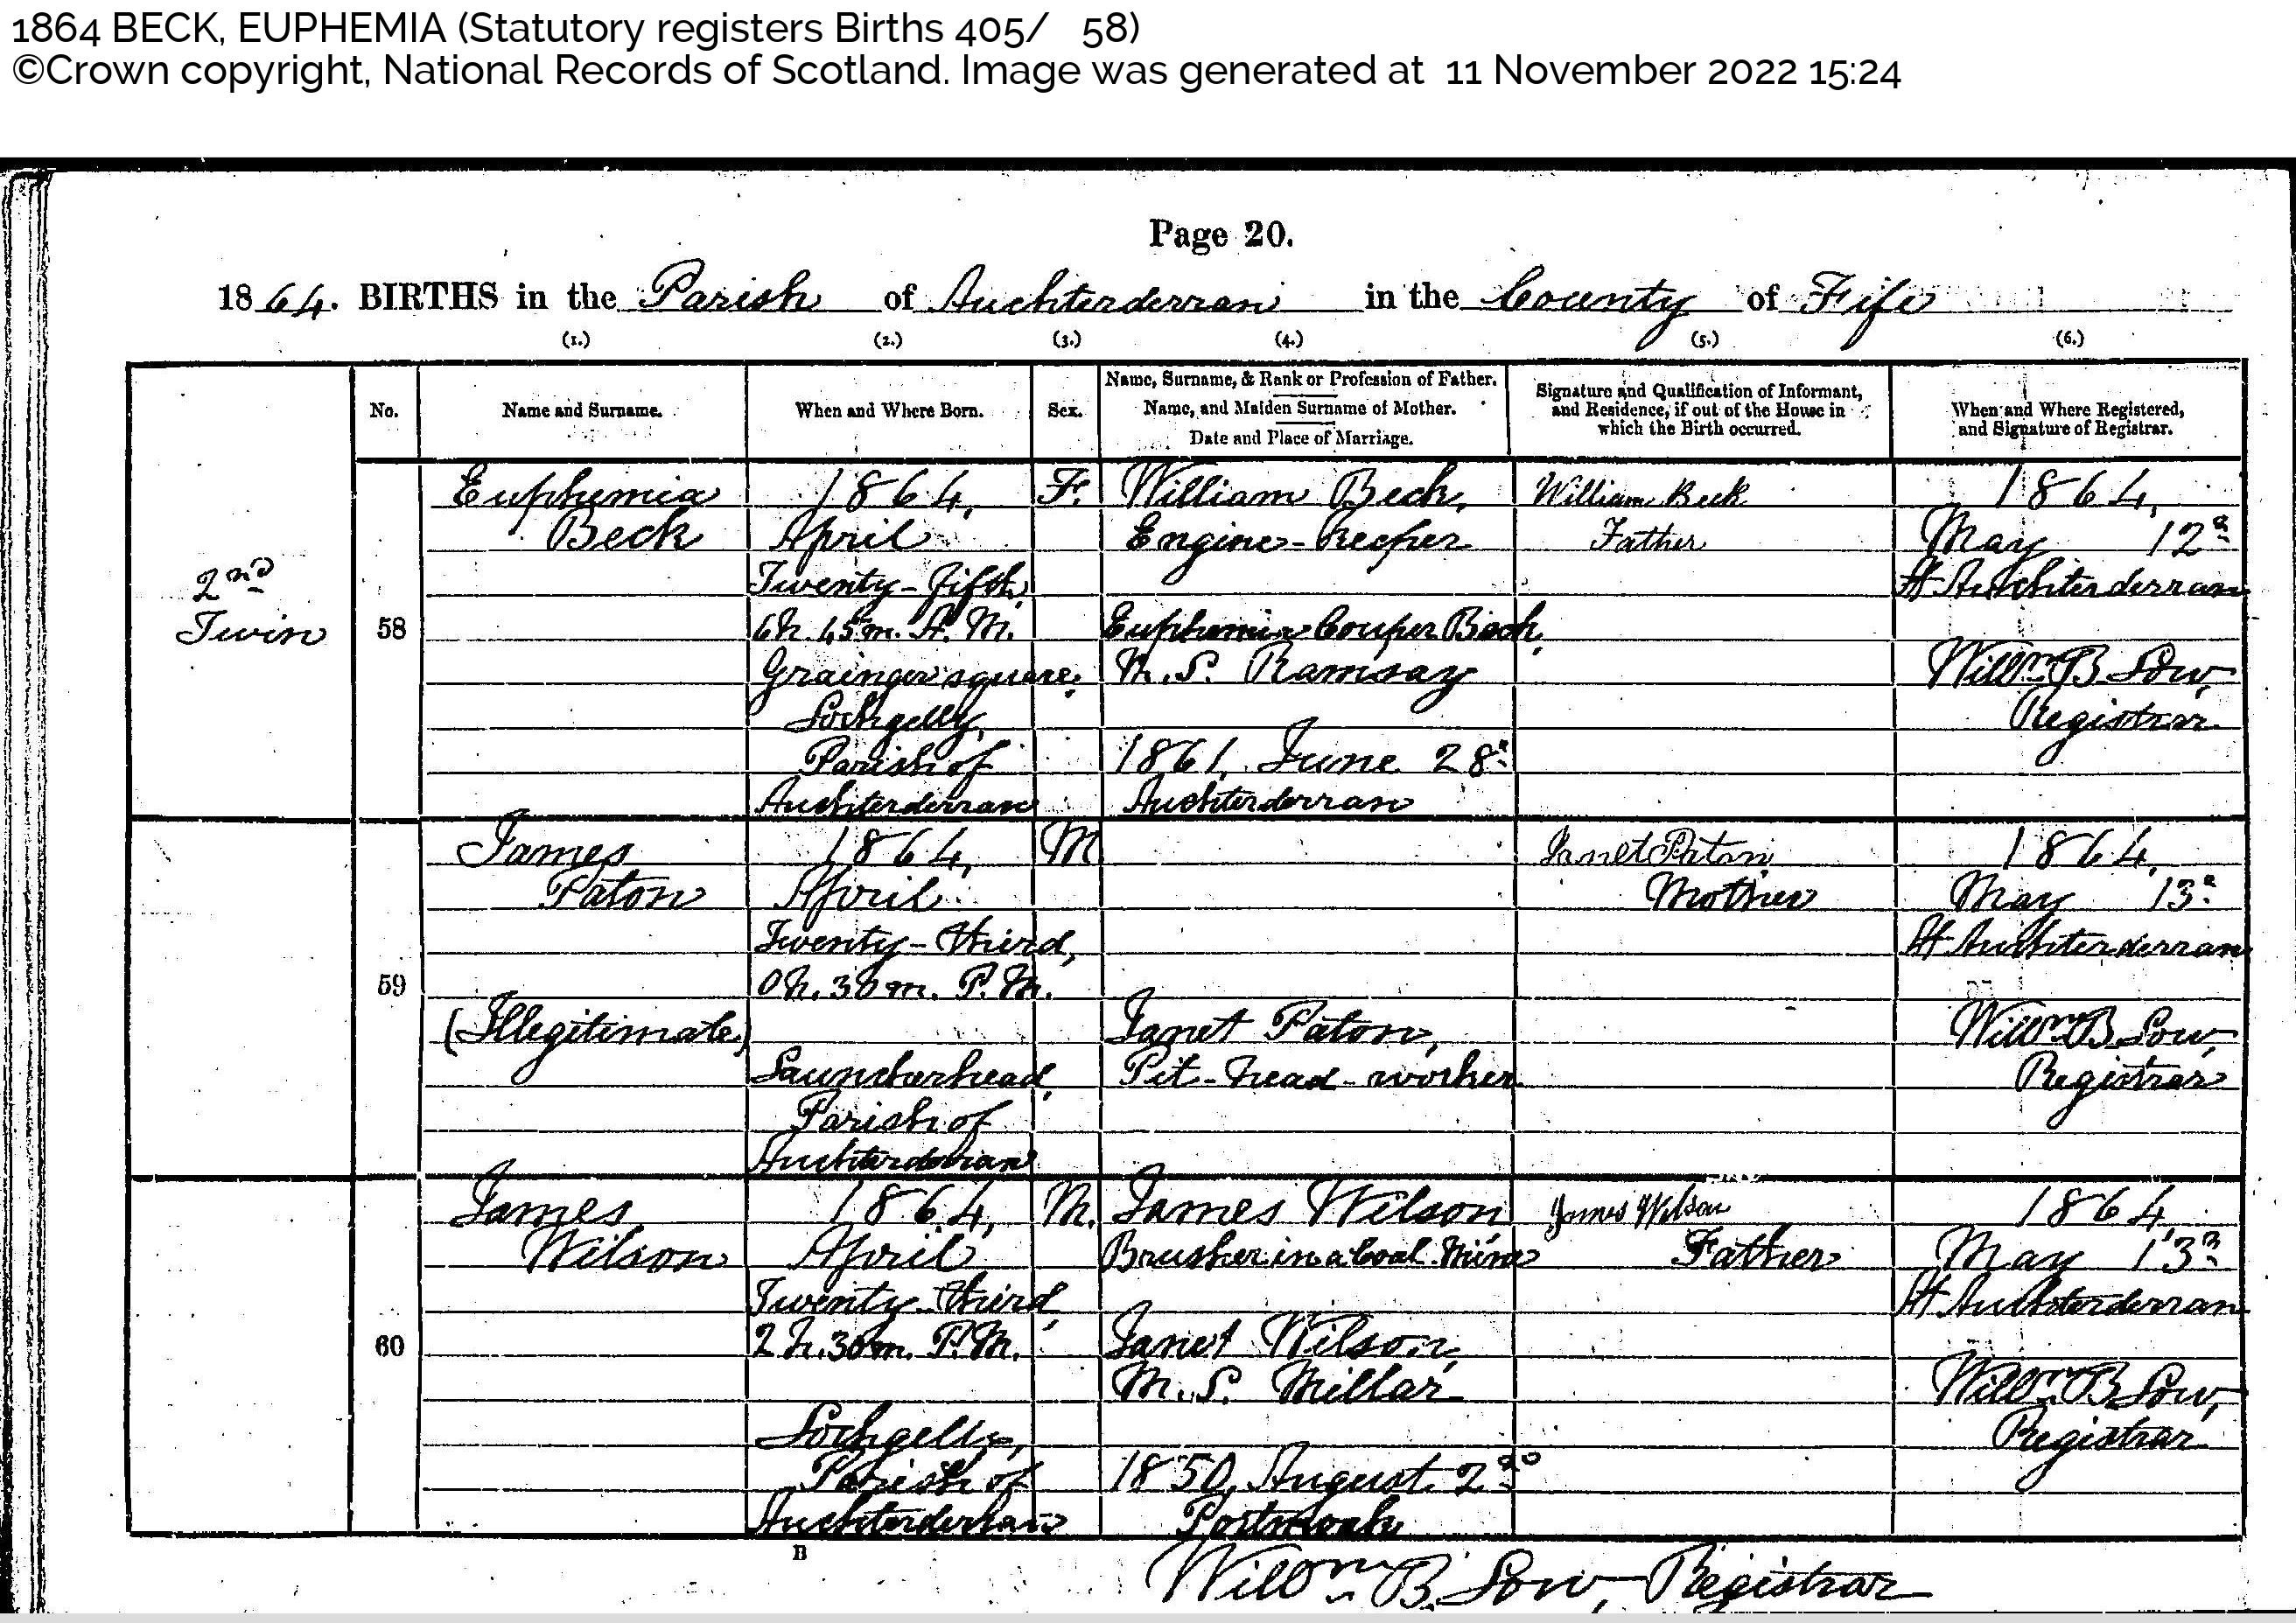 1864 BECK, EUPHEMIA (Statutory registers Births 405/ 58)
©Crown copyright, National Records of Scotland. Image was generated at 11 November 2022 15:24
Page 20.
1864. BIRTHS in the Parish of Auchterderran in the County of Fife
(1.) (2.) (3.) (4.) (5.) (6.)
No.
Name and Surname.
When and Where Born.
Sex.
Name, Surname, & Rank or Profession of Father.
Name, and Maiden Surname of Mother.
Date and Place of Marriage.
Signature and Qualification of Informant,
and Residence, if out of the House in
which the Birth occurred.
When and Where Registered,
and Signature of Registrar.
2nd
Twin
58
Euphemia
Beck
1864,
April
Twenty-fifth,
6h. 45m. A.M.
Grainger square,
Lochgelly,
Parish of
Auchterderran
F.
William Beck,
Engine-Keeper
Euphemia Couper Beck,
M.S. Ramsay
1861, June 28th
Auchterderran
William Beck
Father
1864,
May 12th
At Auchterderran
Willm B Low,
Registrar
59
James
Paton
(Illegitimate)
1864,
April
Twenty-third,
0h. 30m. P.M.
Launcherhead,
Parish of
Auchterderran
M
Janet Paton,
Pit-head-worker
Janet Paton,
Mother
1864,
May 13th
At Auchterderran
Willm B Low,
Registrar
60
James
Wilson
1864,
April
Twenty-third,
2h. 30m. P.M.
Lochgelly,
Parish of
Auchterderran
M.
James Wilson,
Brusher in a Coal Mine
Janet Wilson,
M.S. Millar
1850, August 2nd
Portmoak
James Wilson
Father
1864,
May 13th
At Auchterderran
Willm B Low,
Registrar
B
Willm B. Low, Registrar